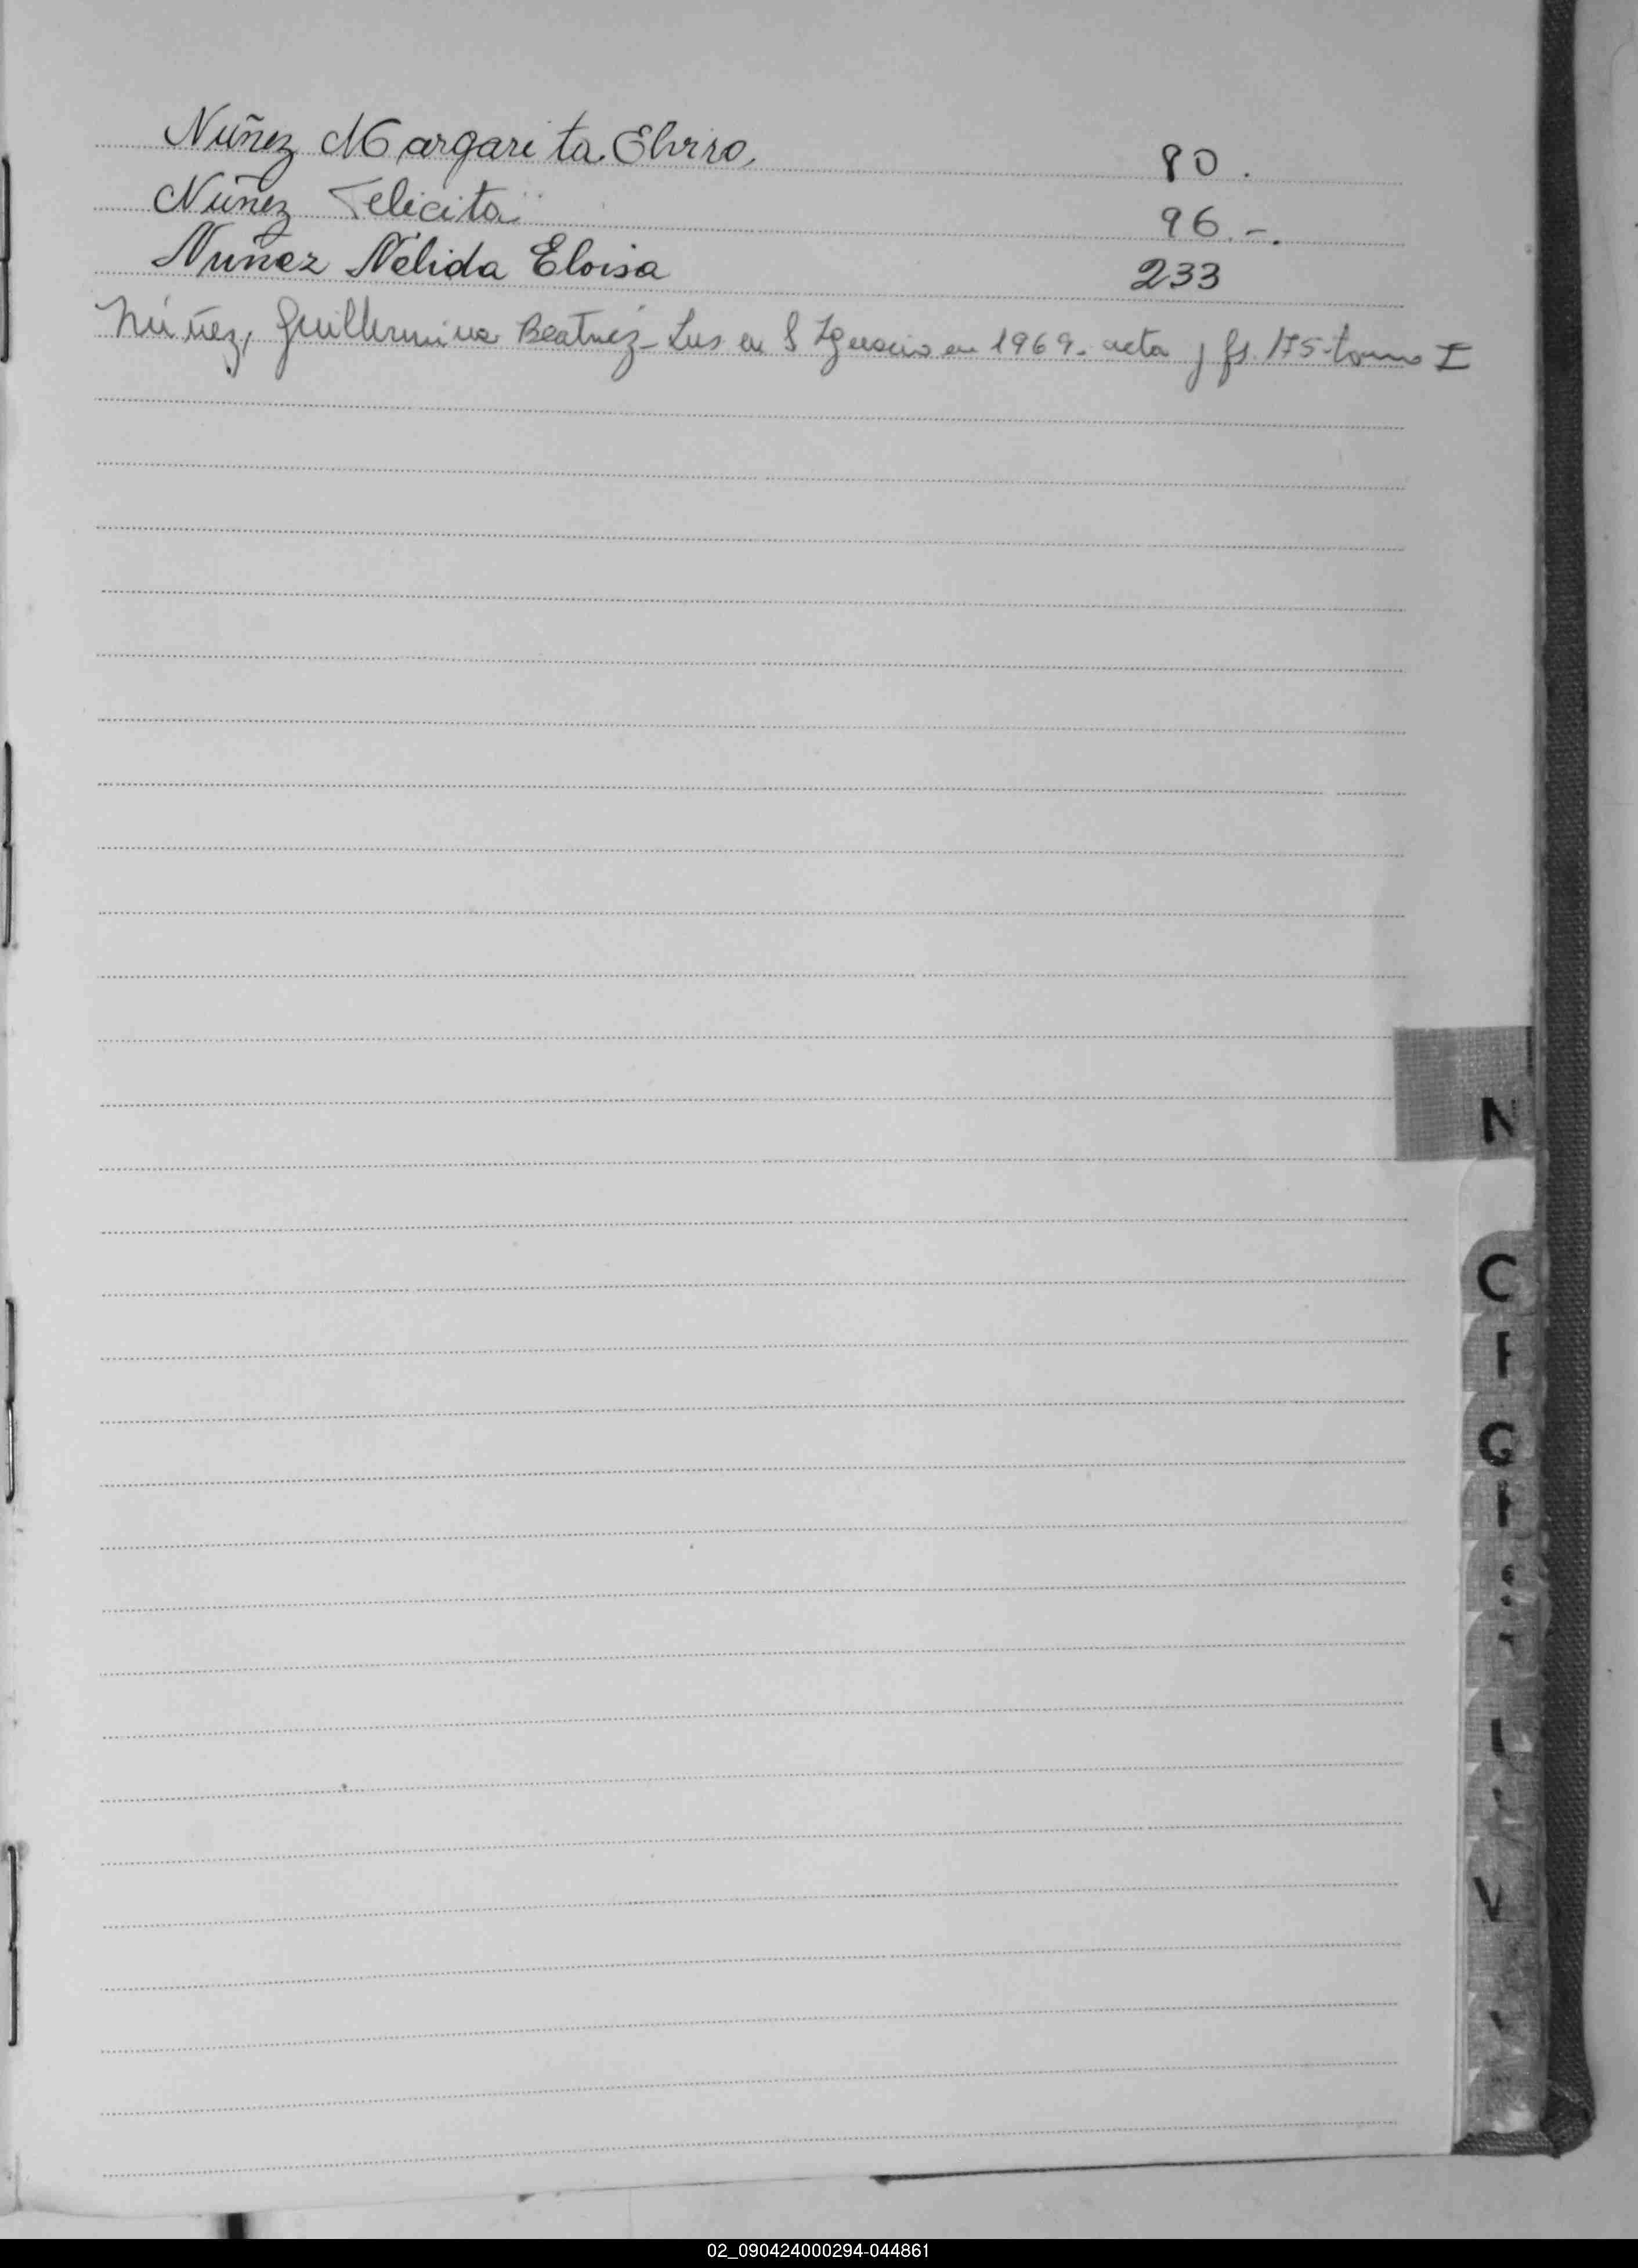 Nuñez Margarita Elvira, 80.
Nuñez Felicita 96.-.
Nuñez Nélida Eloisa 233
Núñez, Guillermina Beatriz - en S Ignacio en 1969. acta y fs. 175- tomo I
N
C
F
G
V
02_090424000294-044861